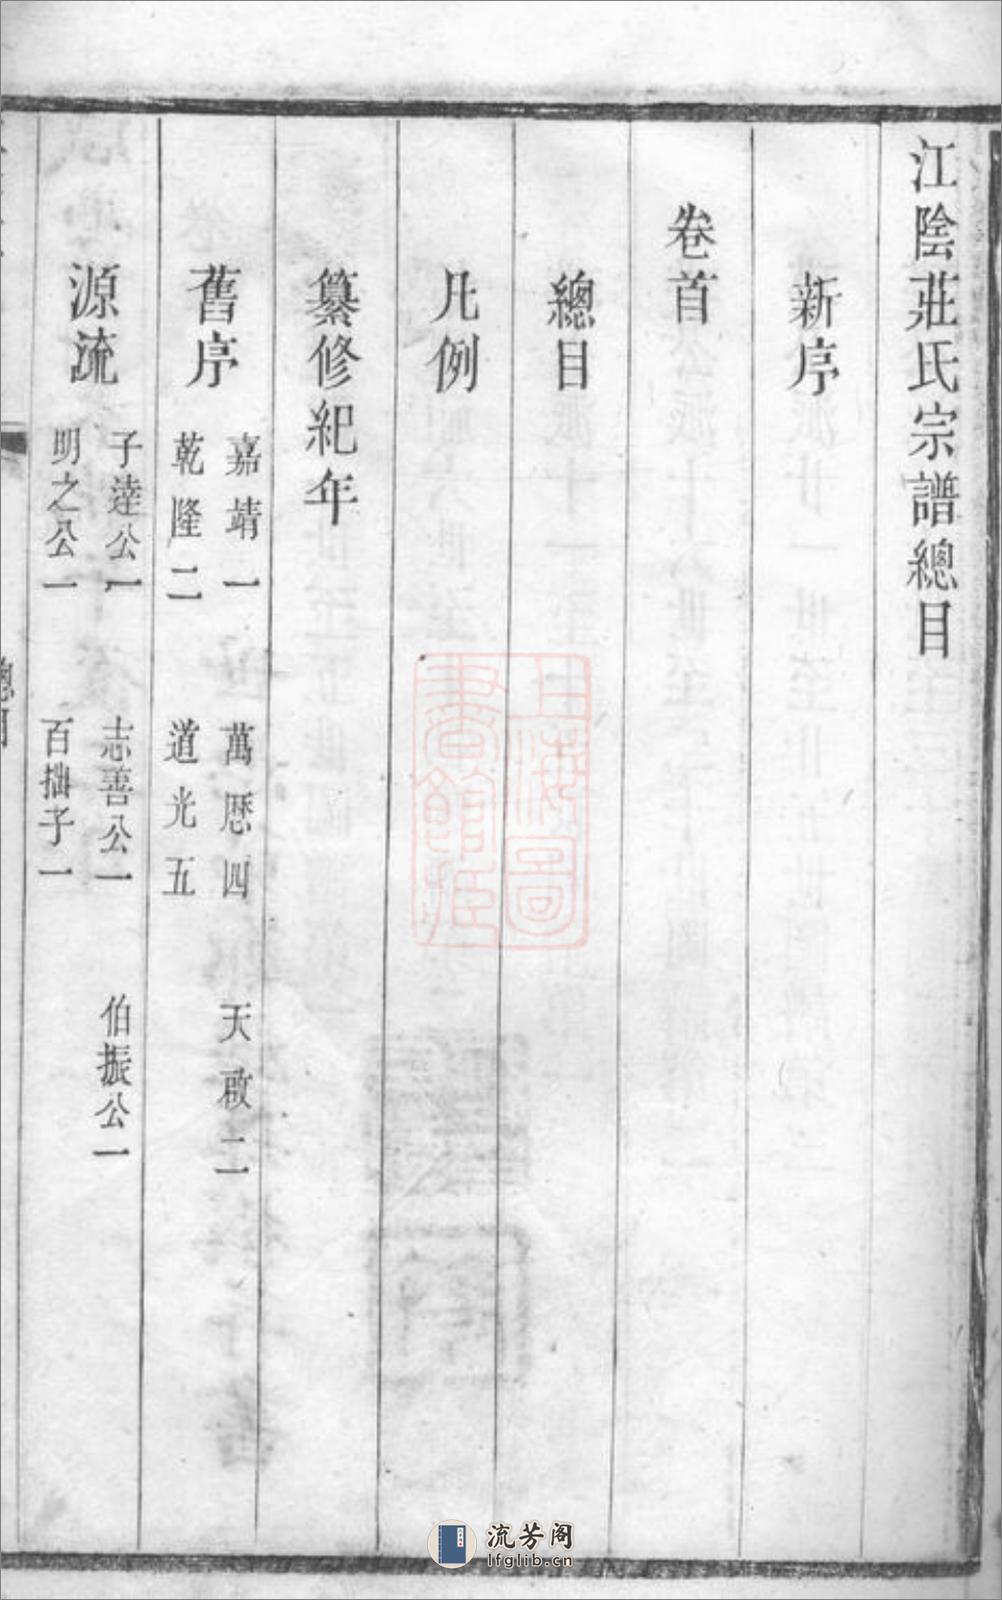 江陰莊氏宗譜總目
新序
卷首
總目
凡例
纂修紀年
舊序 嘉靖一 萬厯四 天啟二
乾隆二 道光五
源流 子逹公一 志善公一 伯振公一
明之公一 百拙子一
總目
上海圖
書館藏
流芳阁
lfglib.cn